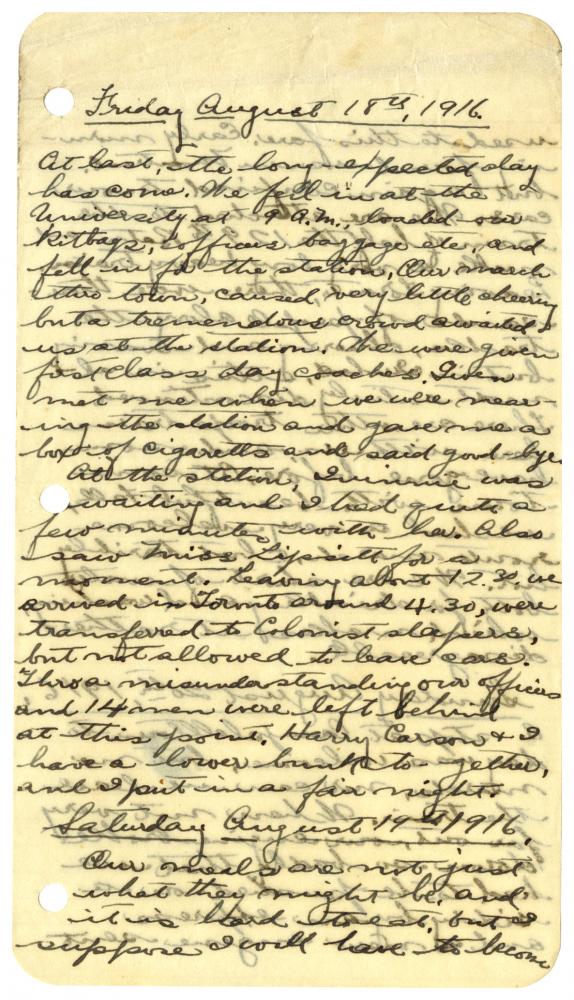 Friday August 18th, 1916.
At last, the long expected day
has come. We fell in at the
University at 9 A.M., loaded our
kitbags, officers baggage etc, and
fell in for the station, Our march
thro town, caused very little cheering
but a tremendous crowd awaited
us at the station. We were given
first class day coaches.
met me when we were near-
ing the station and gave me a
box of cigaretts and said good-bye.
At the station, Winnie was
waiting and I had quite a
few minutes with her. Also
saw Miss Lipsitt for a
moment. Leaving about 12.30, we
arrived in Toronto around 4.30, were
transferred to Colonist sleepers,
but not allowed to leave cars.
Thro a misunderstanding our officers
and 14 men were left behind
at this point. Harry Carson & I
have a lower bunk to-gether,
and I put in a fair night.
Saturday August 19th, 1916,
Our meals are not just
what they might be, and
it is hard to eat, but I
suppose I will have to become